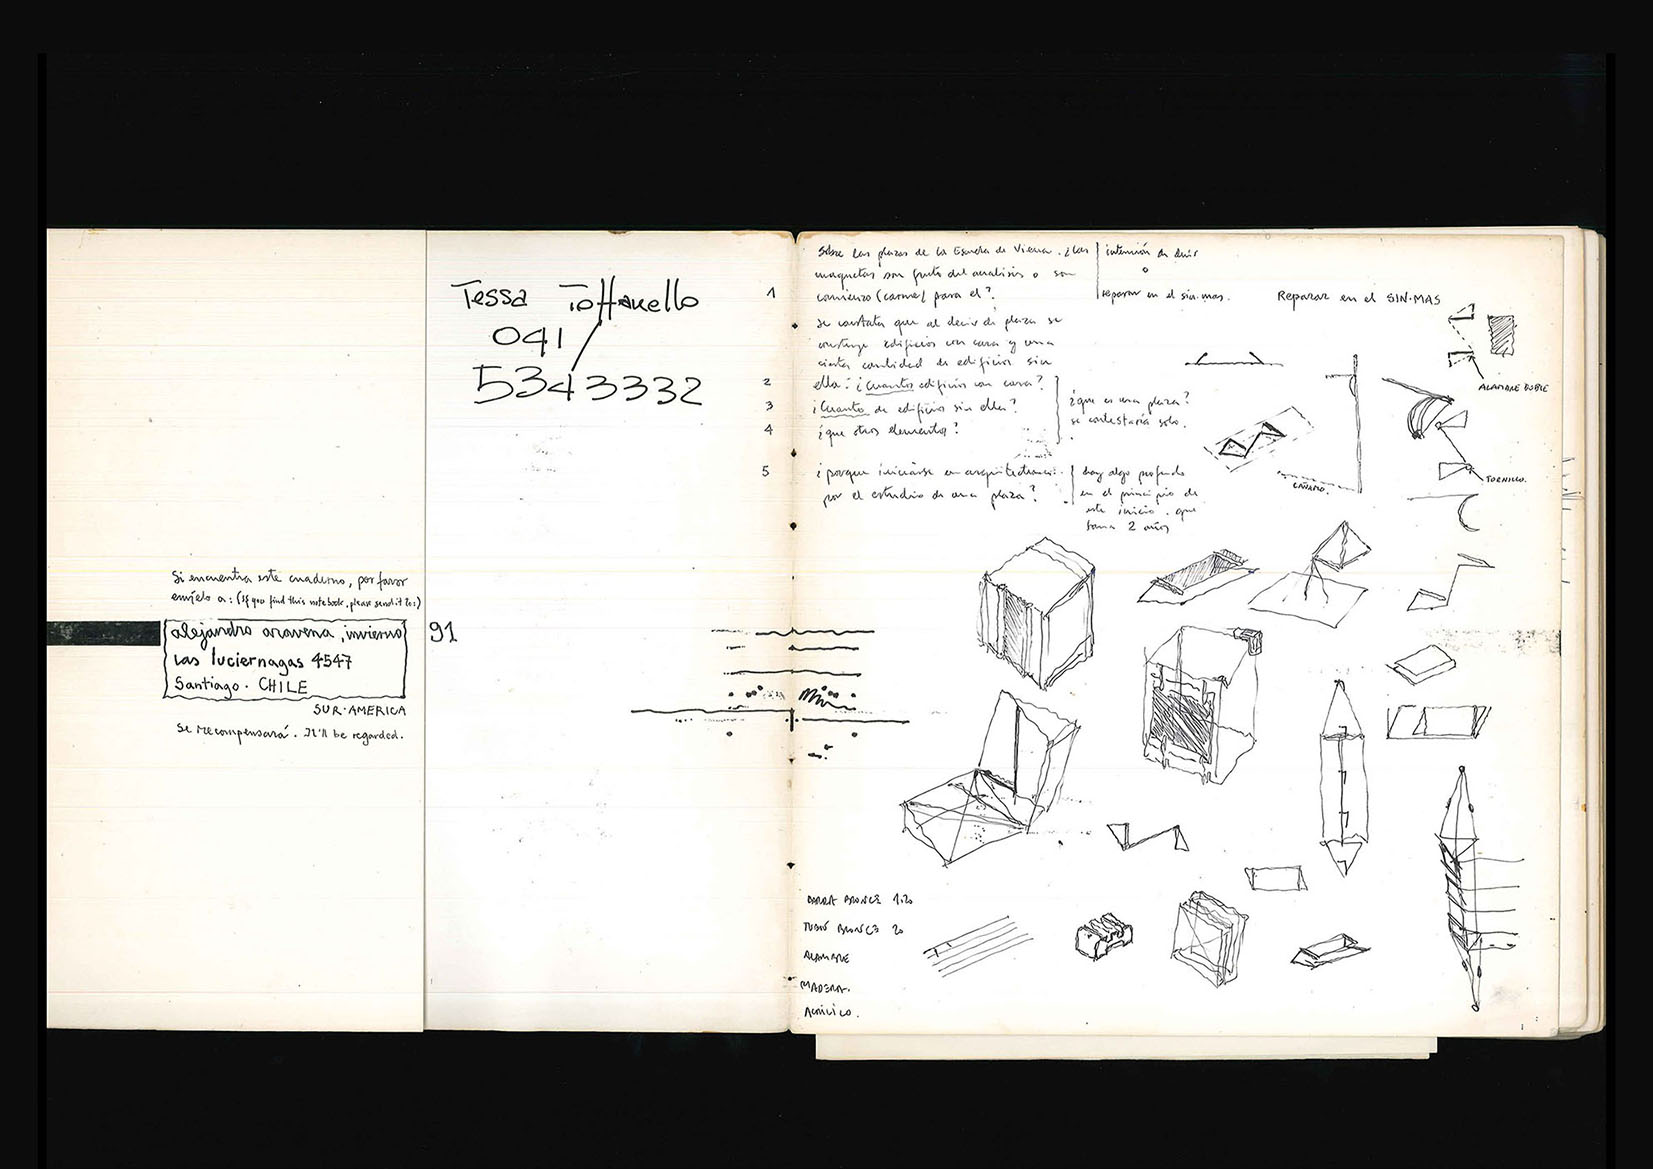 Si encuentra este cuaderno, por favor
envíelo a: (If you find this notebook, please send it to:)
alejandro aravena, invierno 91
Las luciernagas 4547
Santiago. CHILE
SUR·AMERICA
Se recompensará. It'll be regarded.
Tessa Toffanello
041/
5343332
Sobre las plazas de la Escuela de Viena. ¿Las
1 maquetas son fruto del analisis o son
comienzo (carne) para el?
intención de decir
o
reparar en el sin·mas.
Reparar en el SIN·MAS
se constata que al decir de plaza se
construye edificios con cara y una
cierta cantidad de edificios sin
2 ella: ¿Cuantos edificios con cara?
3 ¿Cuanto de edificios sin ella?
4 ¿que otros elementos?
¿que es una plaza?
se contestaría solo.
5 ¿porque iniciarse en arquitectura
por el estudio de una plaza?
hay algo profundo
en el principio de
este inicio. que
toma 2 años
ALAMBRE DOBLE
TORNILLO.
CAÑAMO.
BARRA BRONCE 1.20
TUBO BRONCE 20
ALAMBRE
MADERA.
ACRILICO.